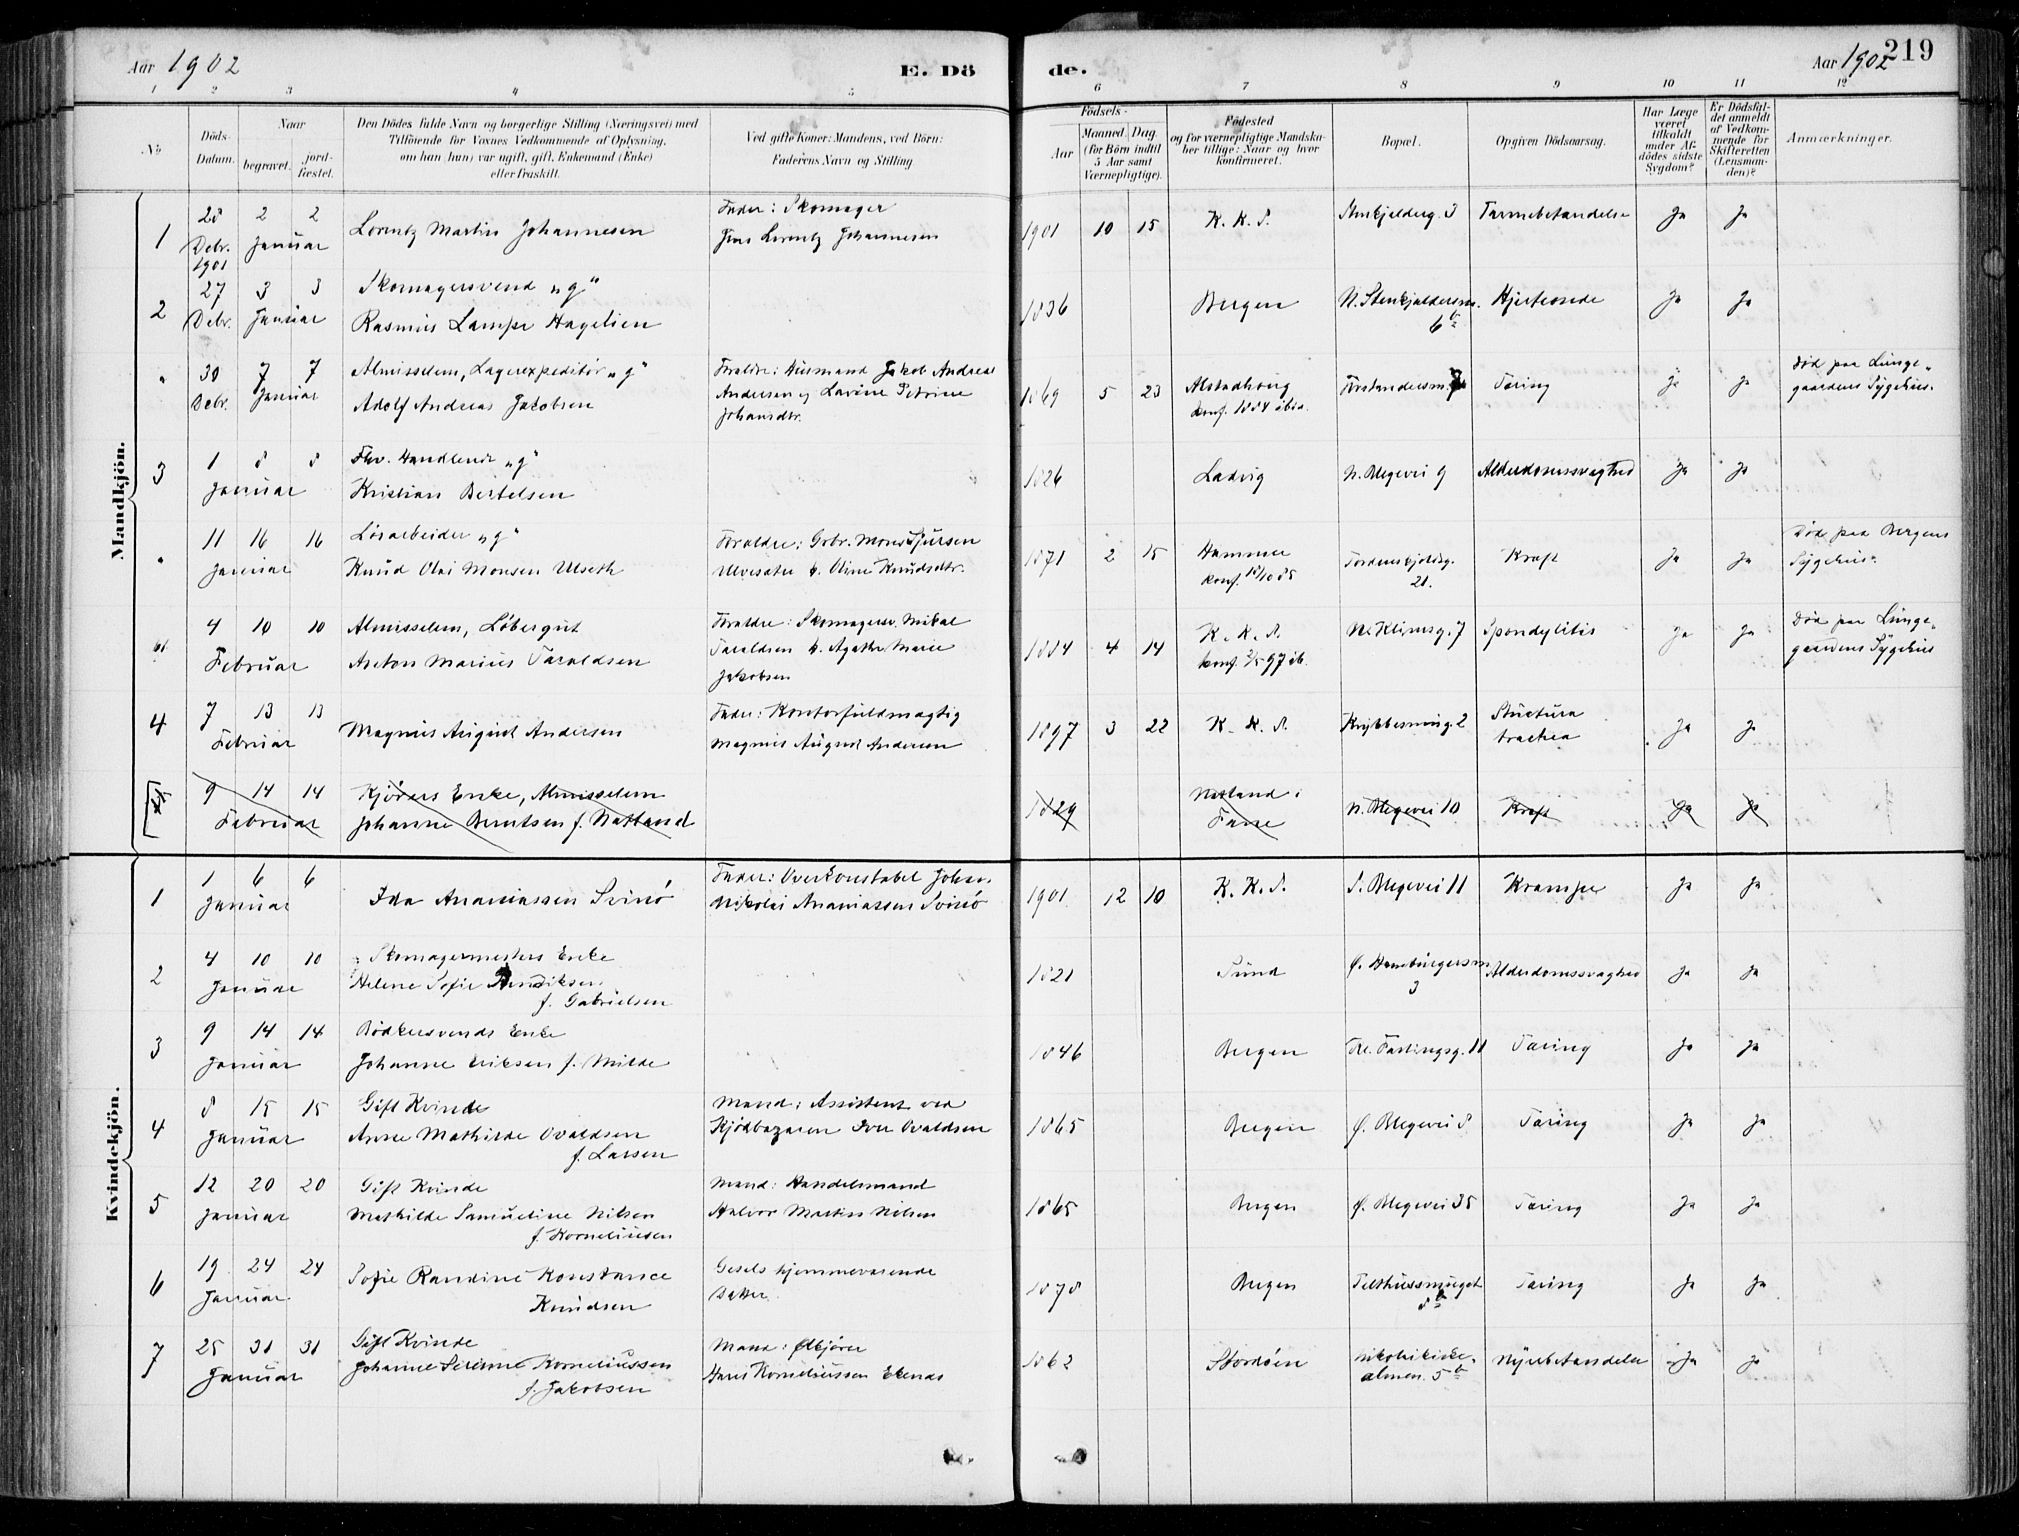 Aar 1902
E. Dö
de.
Aar 1902
219
1 2 3 4 5 6 7 8 9 10 11 12
No
Döds-Datum.
Naar
begravet.
jord-fæstet.
Den Dödes fulde Navn og borgerlige Stilling (Næringsvei) med
Tilföiende for Voxnes Vedkommende af Oplysning,
om han (hun) var ugift, gift, Enkemand (Enke)
eller fraskilt.
Ved gifte Koner: Mandens, ved Börn:
Faderens Navn og Stilling
Födsels-
Aar
Maaned. Dag.
(for Börn indtil
5 Aar samt
Værnepligtige).
Födested
og for værnepligtige Mandska-
ber tillige: Naar og hvor
konfirmeret.
Bopæl.
Opgiven Dödsaarsag.
Har Læge
været
tilkaldt
under Af-
dödes sidste
Sygdom?
Er Dödsfal-
det anmeldt
af Vedkom-
mende for
Skifteretten
(Lensman-
den)?
Anmærkninger.
Mandkjön.
1 28 Debr. 1901 2 2 Januar
Lorentz Martin Johannesen
Fader: Skomager
Jens Lorentz Johannesen
1901 10 15 K. K. S. Stenkjelderg. 3 Tarmebetændelse Ja Ja
2 27 Debr. 3 3 Januar
Skomagersvend "g"
Rasmus Lampe Hagelien
1836 Bergen N. Stenkjeldersm. 6b Hjerteonde Ja Ja
" 30 Debr. 7 7 Januar
Almisselem, Lagerexpeditör "g"
Adolf Andreas Jakobsen
Foraldre: Husmand Jakob Andreas
Andersen og Lavine Petrine
Johansdtr.
1869 5 23 Alstadhoug
konf. 1884 ibid. Forstandersm. 7 Taring Ja Ja
Död paa Lunge-
gaardens Sygehus.
3 1 8 8 Januar
Fhv. Handlende "g"
Kristian Bertelsen
1826 Ladvig N. Blegevei 9 Alderdomssvaghed Ja Ja
" 11 16 16 Januar
Lösarbeider "g"
Knud Olai Monsen Ulseth
Foraldre: Gbr. Mons Sjursen
Ulvesæter & Oline Knudsdtr.
1871 2 15 Hammer
konf. 18/10 85 Tordenskjoldsg. 21. Kræft Ja Ja
Död paa Bergens
Sygehus.
" 4 10 10 Februar
Almisselem, Löbergut
Anton Marius Taraldsen
Foraldre: Skomagersv. Mikal
Taraldsen & Agathe Marie
Jakobsen
1884 4 14 K. K. S. Kl. Klimsg. 7 Spondylitis Ja Ja
Död paa Lunge-
gaardens Sygehus
4 7 13 13 Februar
Magnus August Andersen
Fader: Kontorfuldmægtig
Magnus August Andersen
1897 3 22 K. K. S. Krybbesmug. 2 Ja Ja
9 14 14 Februar
Kjörers Enke, Almisselem
Johanne Berntsen f. Natland
1829 Natland i
Fane N. Blegevei 10 Kræft Ja Ja
Kvindekjön.
1 1 6 6 Januar
Ida Ananiassen Svinö
Fader: Overkonstabel Johan
Nikolai Ananiassen Svinö
1901 12 10 K. K. S. S. Blegevei 11 Krampe Ja Ja
2 4 10 10 Januar
Skomagermesters Enke
Helene Sofie Hendriksen
f. Gabrielsen
1821 Sund Ø. Hamburgersm. 3 Alderdomssvaghed Ja Ja
3 9 14 14 Januar
Bödkersvends Enke
Johanne Eriksen f. Milde
1846 Bergen Kl. Fastingsg. 11 Taring Ja Ja
4 8 15 15 Januar
Gift Kvinde
Anne Mathilde Ovaldsen
f. Larsen
Mand: Assistent ved
Kjödbazaren Iver Ovaldsen
1865 Bergen Ø. Blegevei 8 Taring Ja Ja
5 12 20 20 Januar
Gift Kvinde
Mathilde Samueline Nilsen
f. Korneliusen
Mand: Handelsmand
Halvor Martin Nilsen
1865 Bergen Ø. Blegevei 35 Taring Ja Ja
6 19 24 24 Januar
Sofie Randine Konstance
Knudsen
hjemmevarende
Datter.
1878 Bergen Telthussmuget 8b Taring Ja Ja
7 25 31 31 Januar
Gift Kvinde
Johanne Serine Korneliussen
f. Jakobsen
Mand: Ølkjörer
Hans Korneliussen Ekenæs
1862 Stordöen Nikolaikirke-
almen. 5b Nyrebetændelse Ja Ja